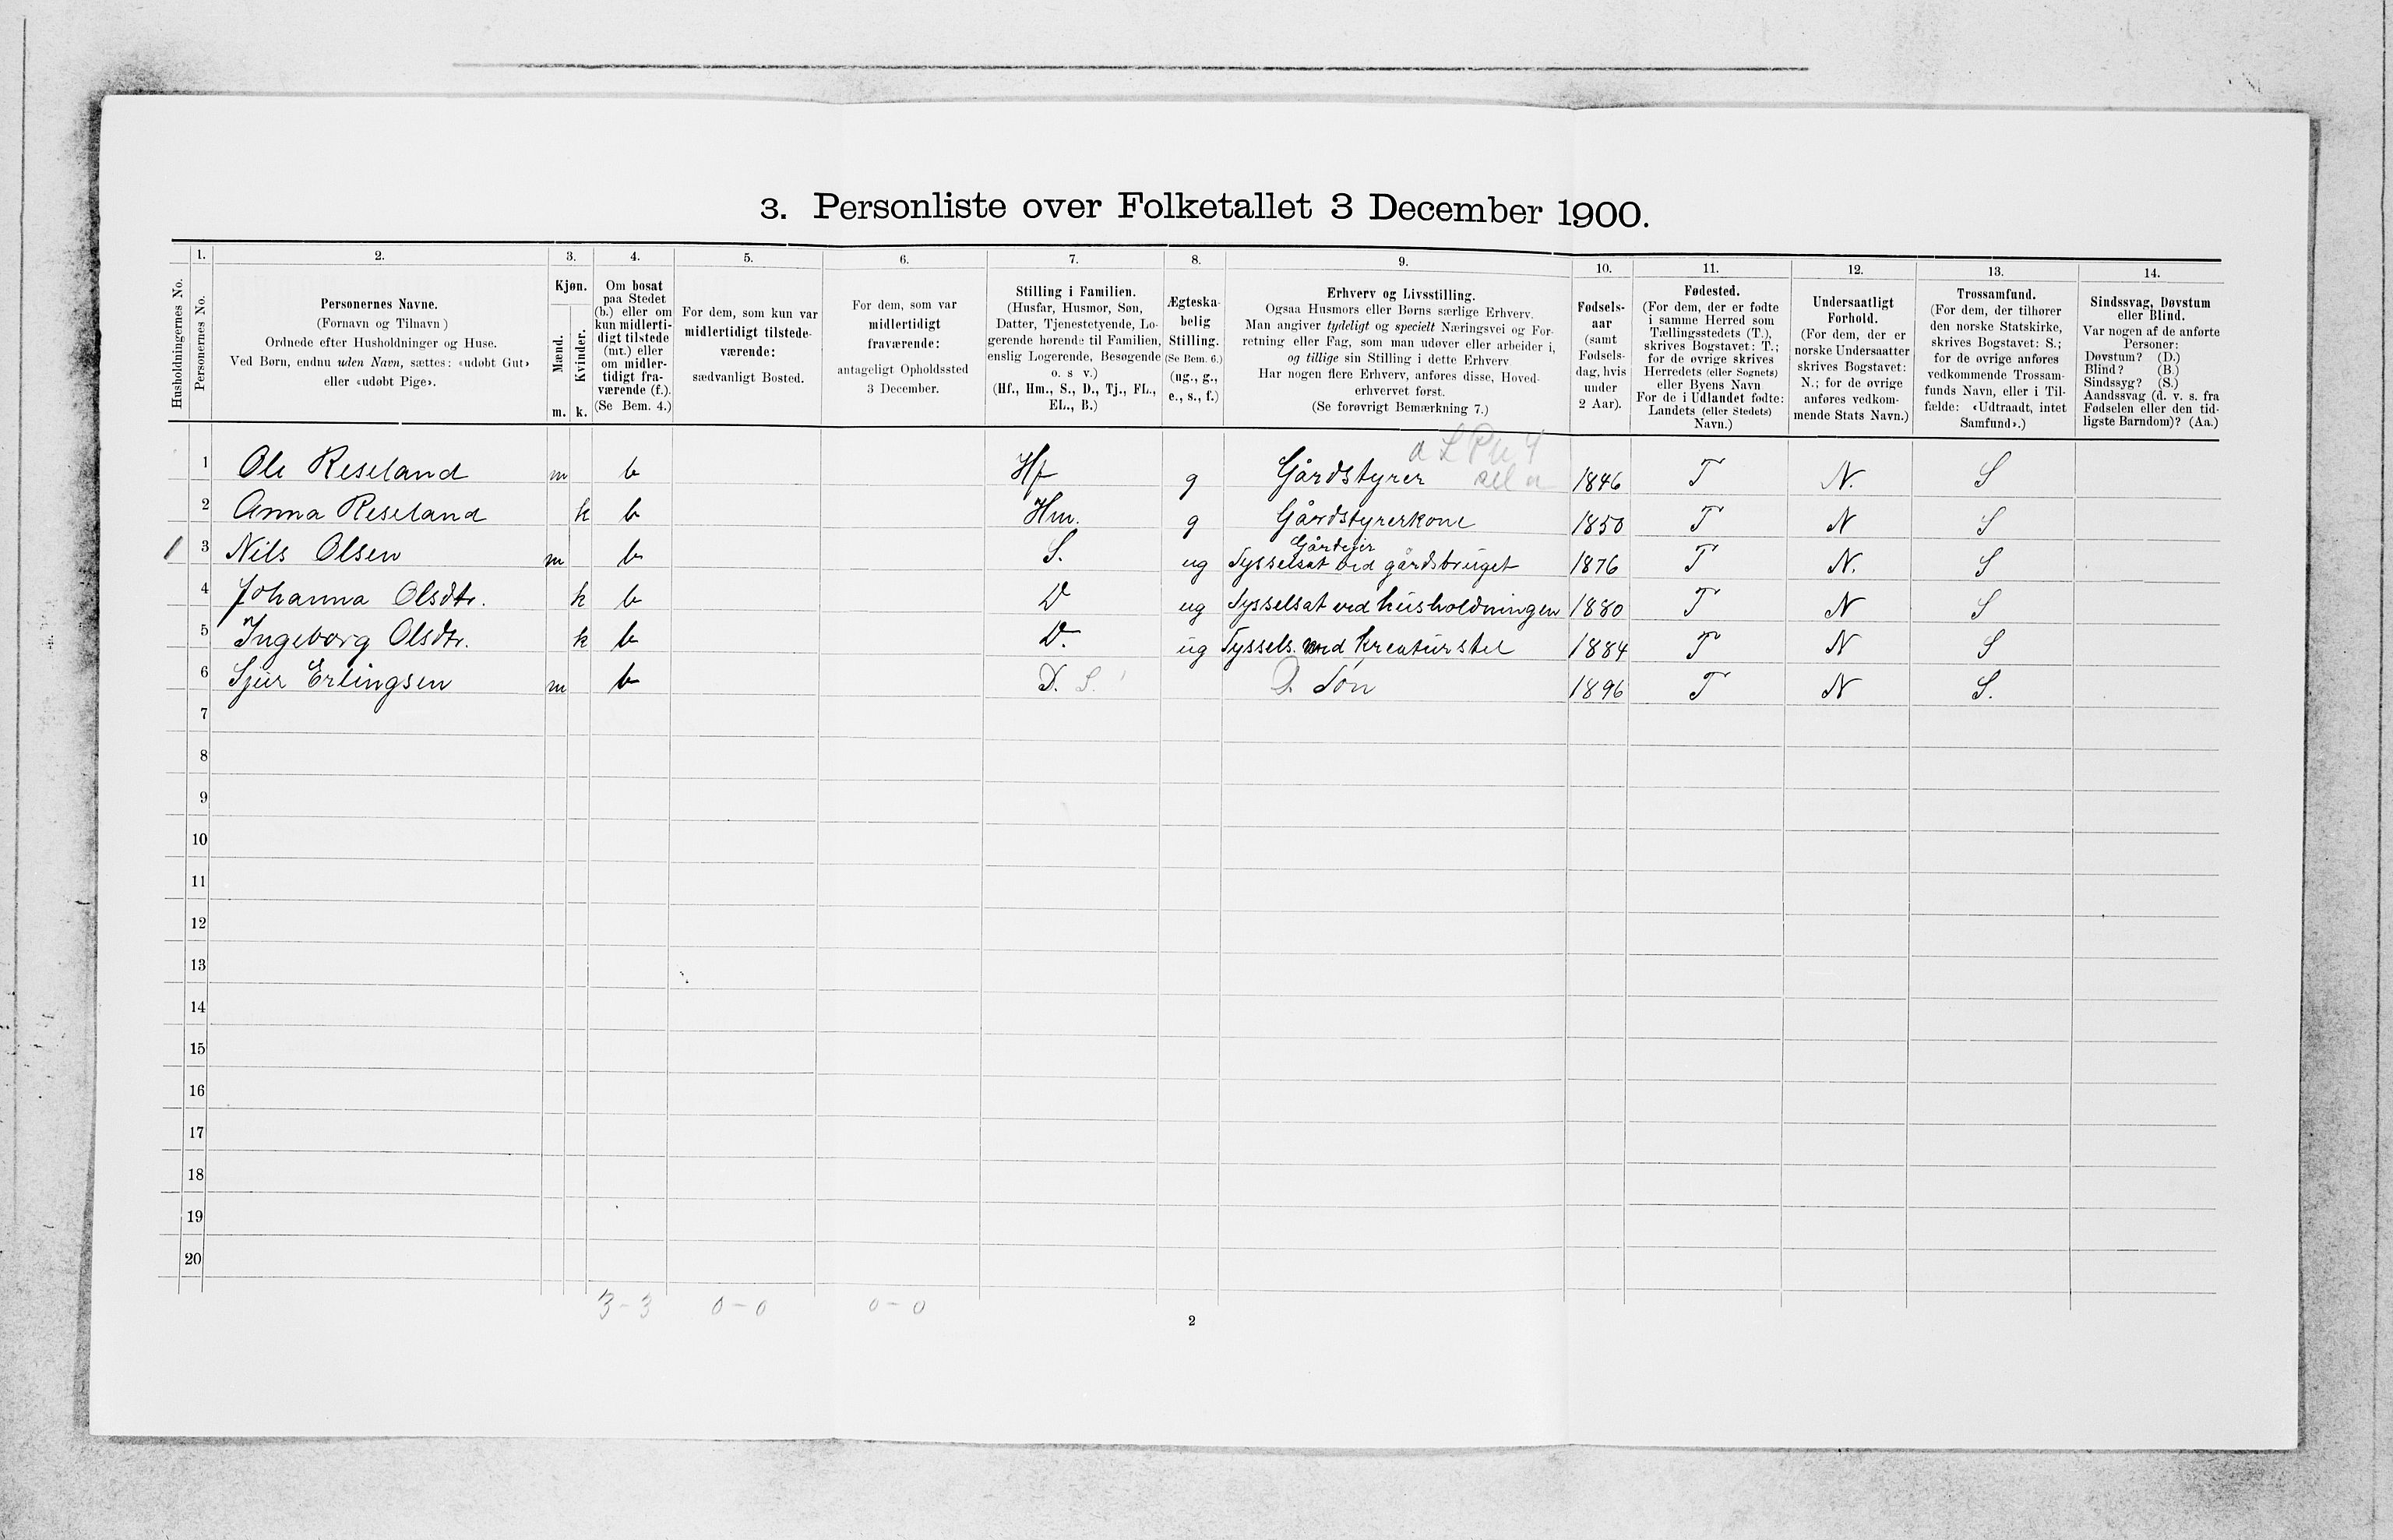 3. Personliste over Folketallet 3 December 1900.
1. 2. 3. 4. 5. 6. 7. 8. 9. 10. 11. 12. 13. 14.
Husholdningernes No.
Personernes No.
Personernes Navne.
(Fornavn og Tilnavn)
Ordnede efter Husholdninger og Huse.
Ved Børn, endnu uden Navn, sættes: «udøbt Gut»
eller «udøbt Pige».
Kjøn.
Mænd.
m.
Kvinder.
k.
Om bosat
paa Stedet
(b.) eller om
kun midlerti-
digt tilstede
(mt.) eller
om midler-
tidigt fra-
værende (f.).
(Se Bem. 4.)
For dem, som kun var
midlertidigt tilstede-
værende:
sædvanligt Bosted.
For dem, som var
midlertidigt
fraværende:
antageligt Opholdssted
3 December.
Stilling i Familien.
(Husfar, Husmor, Søn,
Datter, Tjenestetyende, Lo-
gerende hørende til Familien,
enslig Logerende, Besøgende
o. s v.)
(Hf., Hm., S., D., Tj., FL.,
EL., B.)
Ægteska-
belig
Stilling.
(Se Bem. 6.)
(ug., g.,
e., s., f.)
Erhverv og Livsstilling.
Ogsaa Husmors eller Børns særlige Erhverv.
Man angiver tydeligt og specielt Næringsvei og For-
retning eller Fag, som man udøver eller arbeider i,
og tillige sin Stilling i dette Erhverv
Har nogen flere Erhverv, anføres disse, Hoved-
erhvervet først.
(Se forøvrigt Bemærkning 7.)
Fødsels-
aar
(samt
Fødsels-
dag, hvis
under
2 Aar).
Fødested.
(For dem, der er fødte
i samme Herred som
Tællingsstedets (T.),
skrives Bogstavet: T.;
for de øvrige skrives
Herredets (eller Sognets)
eller Byens Navn
For de i Udlandet fødte:
Landets (eller Stedets)
Navn.)
Undersaatligt
Forhold.
(For dem, der er
norske Undersaatter
skrives Bogstavet:
N.; for de øvrige
anføres vedkom-
mende Stats Navn.)
Trossamfund.
(For dem, der tilhører
den norske Statskirke,
skrives Bogstavet: S.;
for de øvrige anføres
vedkommende Trossam-
funds Navn, eller i Til-
fælde: «Udtraadt, intet
Samfund».)
Sindssvag, Døvstum
eller Blind.
Var nogen af de anførte
Personer:
Døvstum? (D.)
Blind? (B.)
Sindssyg? (S.)
Aandssvag (d. v. s. fra
Fødselen eller den tid-
ligste Barndom)? (Aa.)
1 Ole Reseland m b Hf g Gårdstyrer 1846 T N. S
2 Anna Reseland k b Hm. g Gårdstyrerkone 1850 T N S
Gårdejer
3 Nils Olsen m b S. ug Sysselsat ved gårdsbruget 1876 T N. S
4 Johanna Olsdtr. k b D ug Sysselsat ved husholdningen 1880 T N S
5 Ingeborg Olsdtr. k b D. ug Syssels. ved Kreaturstel 1884 T N S
6 Sjur Erlingsen m b D. S. D. Søn 1896 T N S.
7
8
9
10
11
12
13
14
15
16
17
18
19
20
3-3 0-0 0-0
2